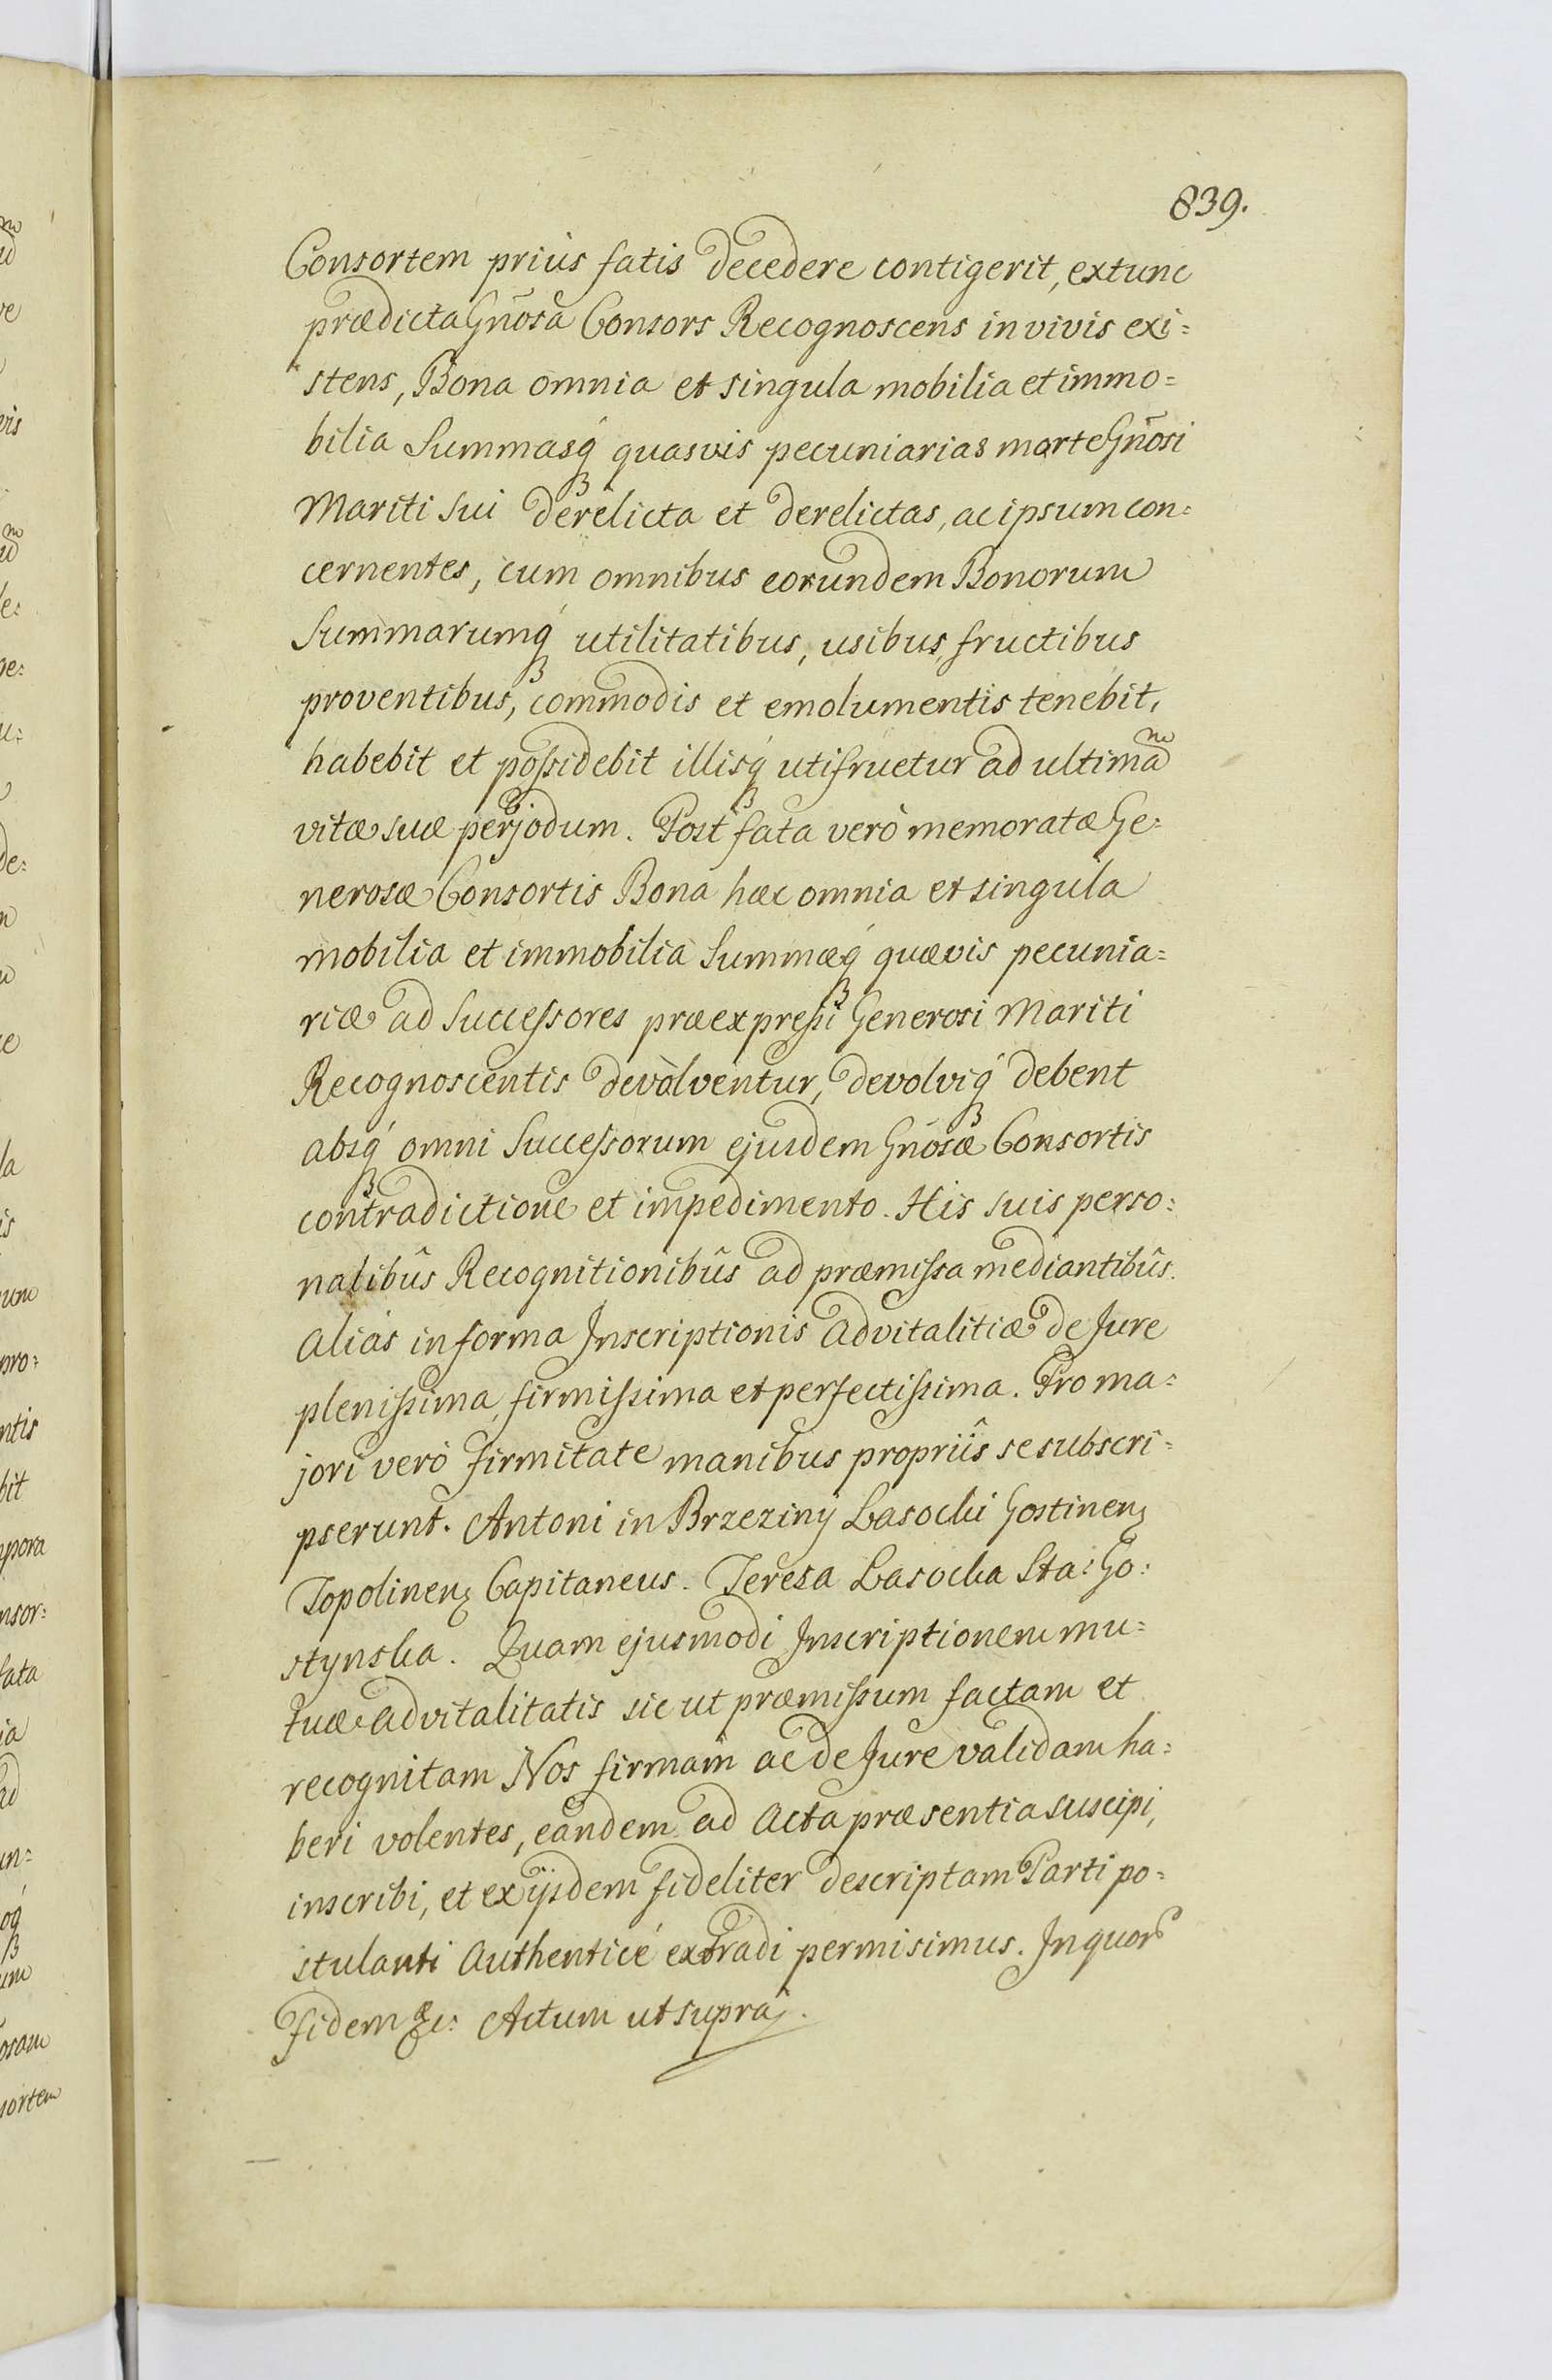 839.
Consortem priùs fatis decedere contigerit, extunc
prædicta Gnõsa Consors Recognoscens in vivis exi=
stens, Bona omnia et singula mobilia et immo=
bilia Summasq́ quasvis pecuniarias morte Gnõsi
Mariti sui derelicta et derelictas, ac ipsum con=
cernentes, cum omnibus eorundem Bonorum
Summarumq́ utilitatibus, usibus, fructibus
proventibus, commodis et emolumentis tenebit,
habebit et possidebit illisq́ utifruetur ad ultimam
vitæ suæ perjodum. Post fata verò memoratæ Ge=
nerosæ Consortis Bona hæc omnia et singula
mobilia et immobilia Summæq́ quævis pecunia=
riæ ad Successores præexpressi Generosi Mariti
Recognoscentis devolventur, devolviq́ debent
absq́ omni Successorum ejusdem Gnõsæ Consortis
contradictione et impedimento. His suis perso=
nalibûs Recognitionibûs ad præmissa mediantibûs.
Aliàs in forma Inscriptionis Advitalitiæ de Jure
plenissima, firmissima et perfectissima. Pro ma=
jori verò firmitate manibus propriis se subscri=
pserunt. Antoni in Brzeziny Lasocki Gostinenȝ
Topolinenȝ Capitaneus. Teresa Lasocka Sta: Go=
stynska. Quam ejusmodi Inscriptionem mu=
tuæ Advitalitatis sic ut præmissum factam et
recognitam Nos firmam ac de Jure validam ha=
beri volentes, eandem ad Acta præsentia suscipi,
inscribi, et ex ijsdem fideliter descriptam Parti po=
stulanti Authenticé extradi permisimus. In quor
fidem &c: Actum ut supra.